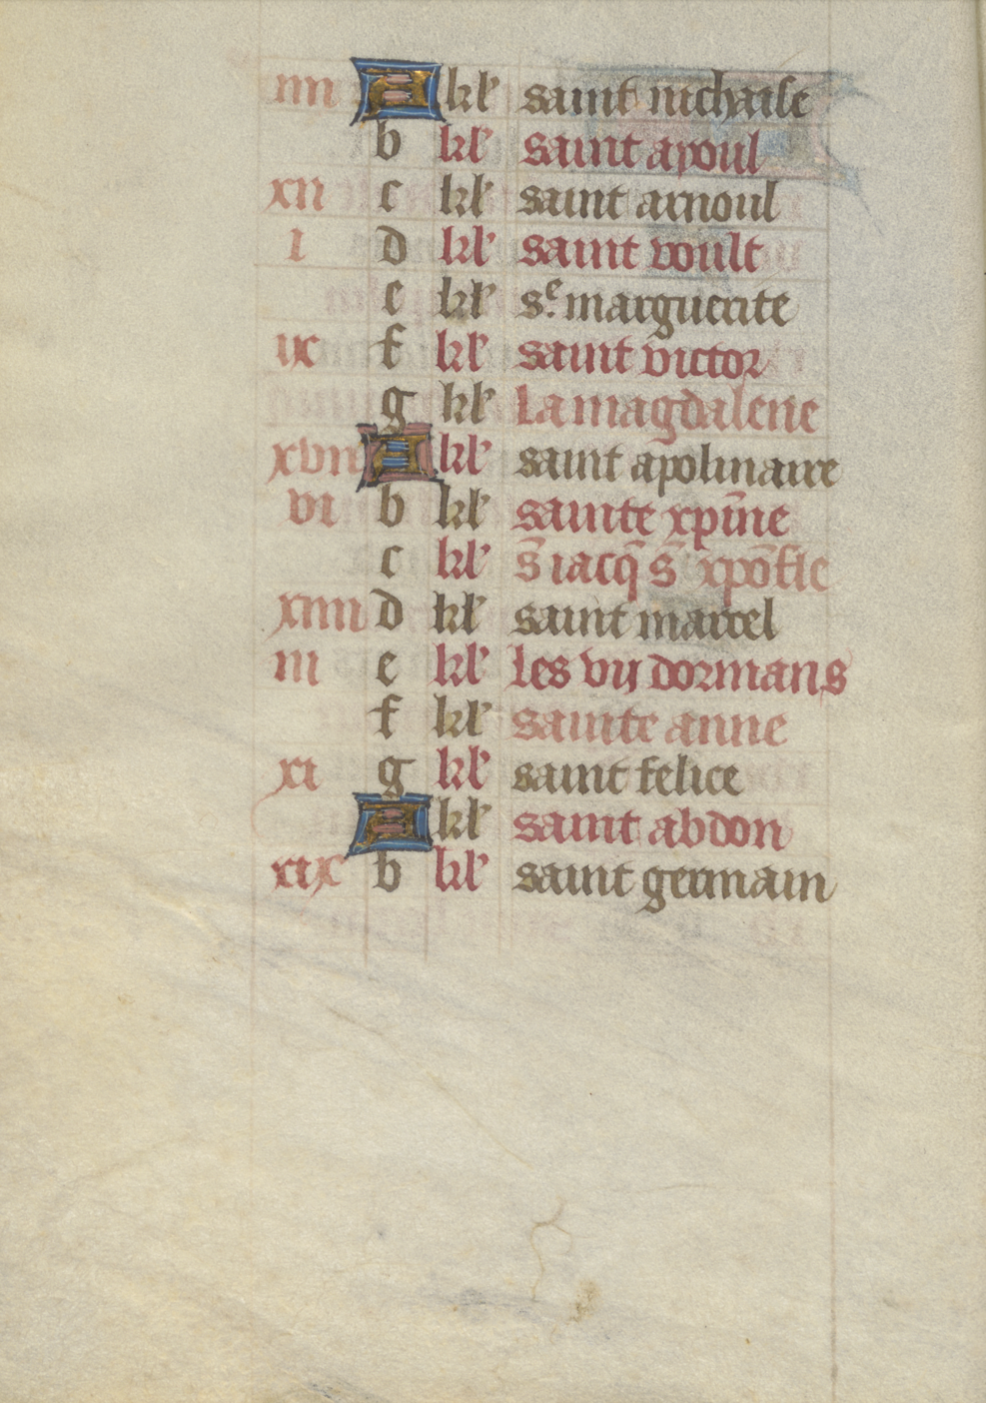 iiii A kl' saint nichaise
b kl' saint apoul
xii c kl' saint arnoul
i d kl' saint voult
e kl' sᵉ. marguerite
ix f kl' saint victor
g kl' La magdalene
xvii A kl' saint apolinaire
vi b kl' sainte xp̄ine
c kl' s̄ iacq̄ s̄ xpōfle
xiiii d kl' saint marcel
iii e kl' Les vij dormans
f kl' sainte anne
xi g kl' saint felice
A kl' saint abdon
xix b kl' saint germain